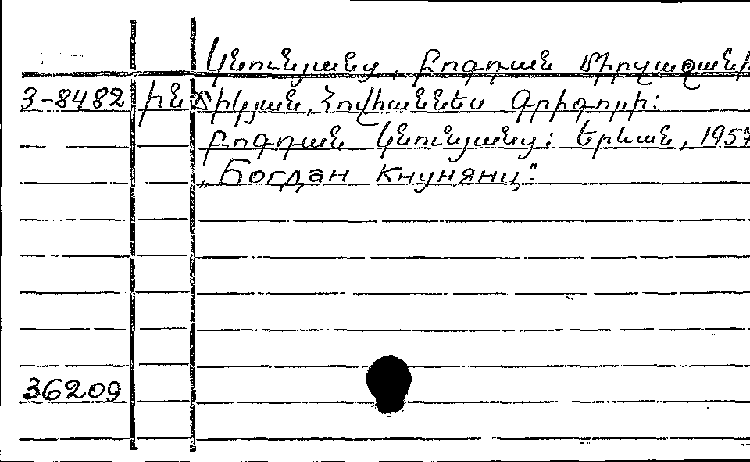 Կնունյանց, Բոգդան Միրզաջանի
3-8482 ին Ճիկյան, Հովհաննես Գրիգորի:
Բոգդան Կնունյանց: Երևան, 1957
„Богдан Кнунянц".
36209